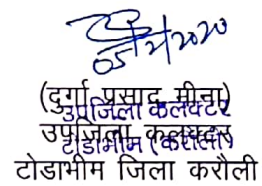 05/2/2020
(दुर्गा प्रसाद मीना)
उपजिला कलेक्टर
उपजिला कलक्टर
टोडाभीम (करौली)
टोडाभीम जिला करौली